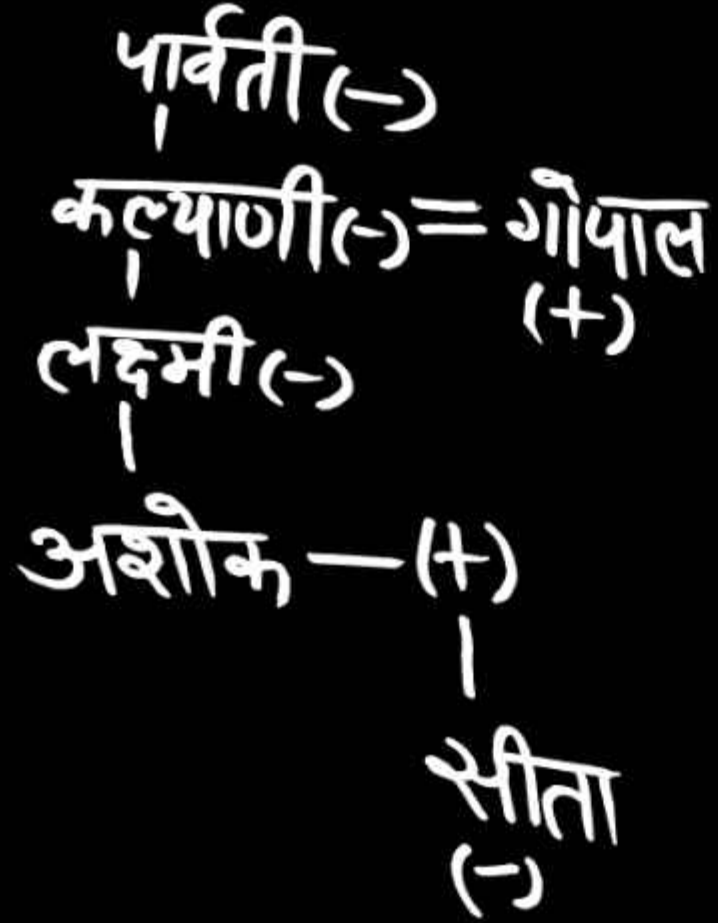 पार्वती (-)
कल्याणी (-) = गोपाल
(+)
लक्ष्मी (-)
अशोक — (+)
सीता
(-)